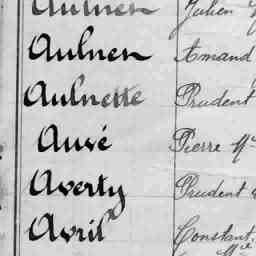 Aulner Julien
Aulner Amand
Aulnette Prudent
Auvé Pierre Mie
Averty Prudent
Avril Constant